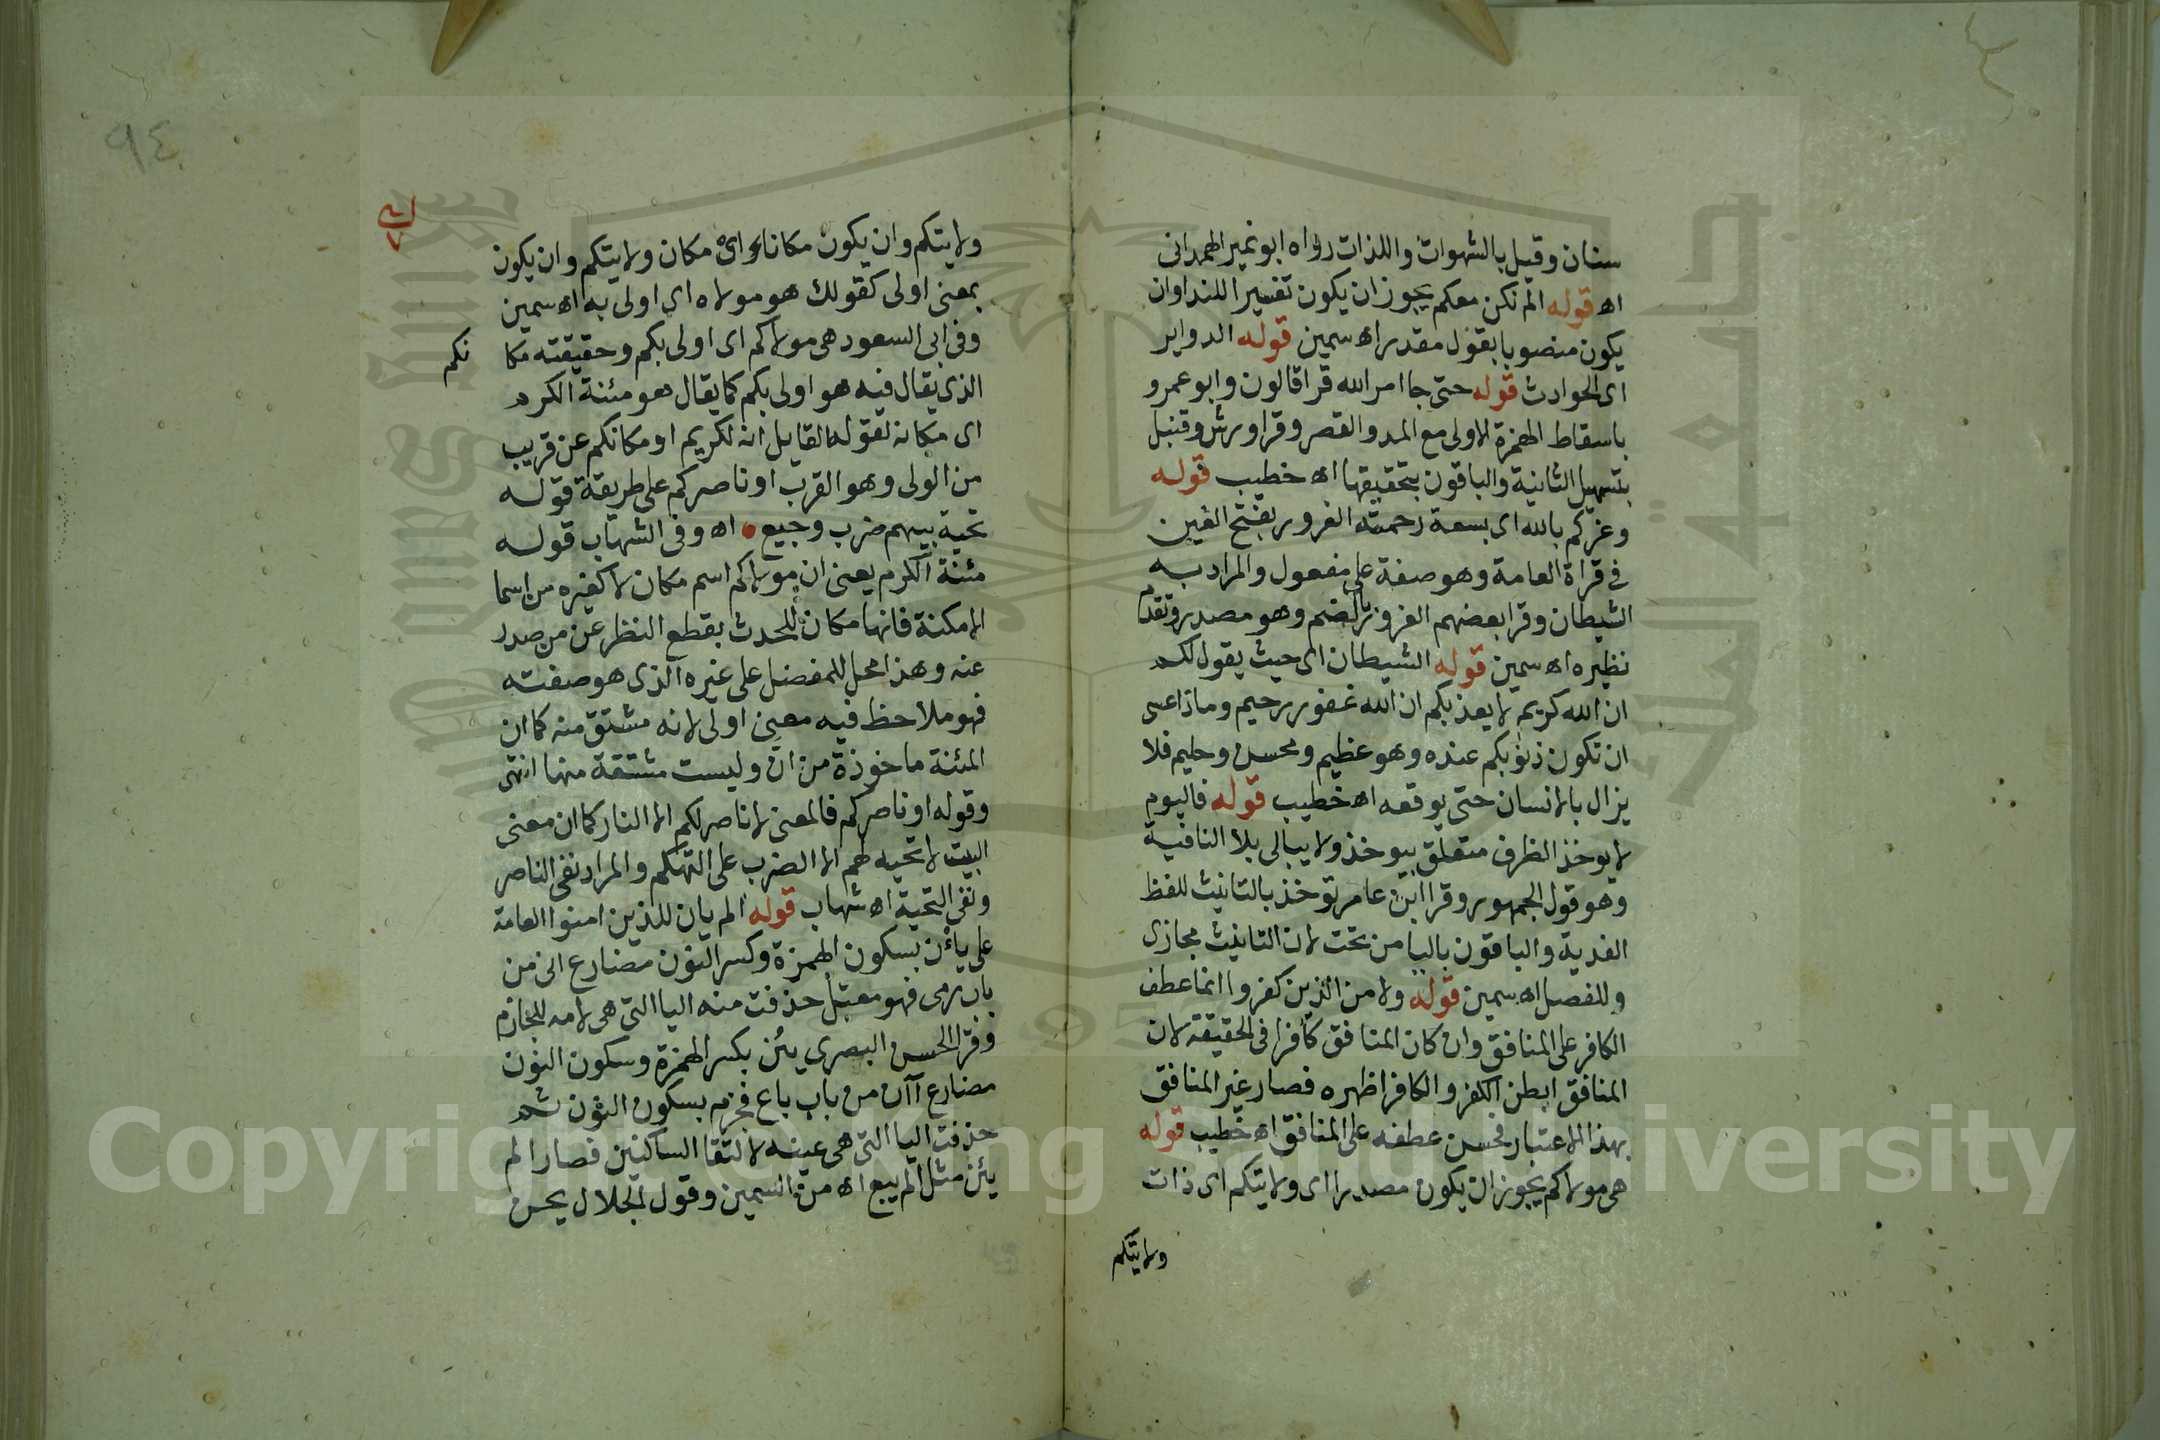 سنان وقيل بالشهوات واللذات رواه ابو نمير الهمداني
اه قوله الم نكن معكم يجوز ان يكون تفسيرا للندا وان
يكون منصوبا بقول مقدر اه سمين قوله الدواير
اى الحوادث قوله حتى جا امر الله قرا قالون وابو عمرو
باسقاط الهمزة الاولى مع المد والقصر وقرا ورش وقنبل
بتسهيل الثانية والباقون بتحقيقها اه خطيب قوله
وغركم بالله اى بسعة رحمته الغرور بفتح الغين
في قراة العامة وهو صفة على مفعول والمراد به
الشيطان وقرا بعضهم الغرور بالضم وهو مصدر وتقدم
نظيره اه سمين قوله الشيطان اى حيث يقول لكم
ان الله كريم لا يعذبكم ان الله غفور رحيم وماذا عسى
ان تكون ذنوبكم عنده وهو عظيم ومحسن وحليم فلا
يزال بالانسان حتى يوقعه اه خطيب قوله فاليوم
لا يوخذ الظرف متعلق بيوخذ ولا يبالى بلا النافية
وهو قول الجمهور وقرا ابن عامر توخذ بالتانيث للفظ
الفدية والباقون باليا من تحت لان التانيث مجازى
وللفصل اه سمين قوله ولا من الذين كفروا انما عطف
الكافر على المنافق وان كان المنافق كافرا في الحقيقة لان
المنافق ابطن الكفر والكافر اظهره فصار غير المنافق
بهذا الاعتبار فحسن عطفه على المنافق اه خطيب قوله
هى مولاكم يجوز ان يكون مصدرا اى ولايتكم اى ذات
ولايتكم
٩٤
ولايتكم وان يكون مكانا اى مكان ولايتكم وان يكون
بمعنى اولى كقولك هو مولاه اى اولى به اه سمين
وفي ابى السعود هى مولاكم اى اولى بكم وحقيقته مكا
نكم
الذى يقال فيه هو اولى بكم كما يقال هو مئنة الكرم
اى مكان لقول القايل انه لكريم او مكانكم عن قريب
من الولى وهو القرب او ناصركم على طريقة قوله
تحية بينهم ضرب وجيع اه وفى الشهاب قوله
مئنة الكرم يعنى ان مولاكم اسم مكان لا كغيره من اسما
الامكنة فانها مكان للحدث بقطع النظر عن من صدر
عنه وهذا محل للمفضل على غيره الذى هو صفته
فهو ملاحظ فيه معنى اولى لانه مشتق منه كما ان
المئنة ماخوذة من ان وليست مشتقة منها انتهى
وقوله او ناصركم فالمعنى لا ناصر لكم الا النار كما ان معنى
البيت لا تحيه لهم الا الضرب على التهكم والمراد نفى الناصر
ونفى التحية اه شهاب قوله الم يان للذين امنوا العامة
على يأن بسكون الهمزة وكسر النون مضارع انى من
باب رمى فهو معتل حذفت منه اليا التى هى لامه للجازم
وقرا الحسن البصرى يئن بكسر الهمزة وسكون النون
مضارع آن من باب باع فجزم بسكون النون ثم
حذفت اليا التى هى عينه لالتقا الساكنين فصار الم
يئن مثل الم يبع اه من السمين وقول الجلال يحن
Copyright © King Saud University